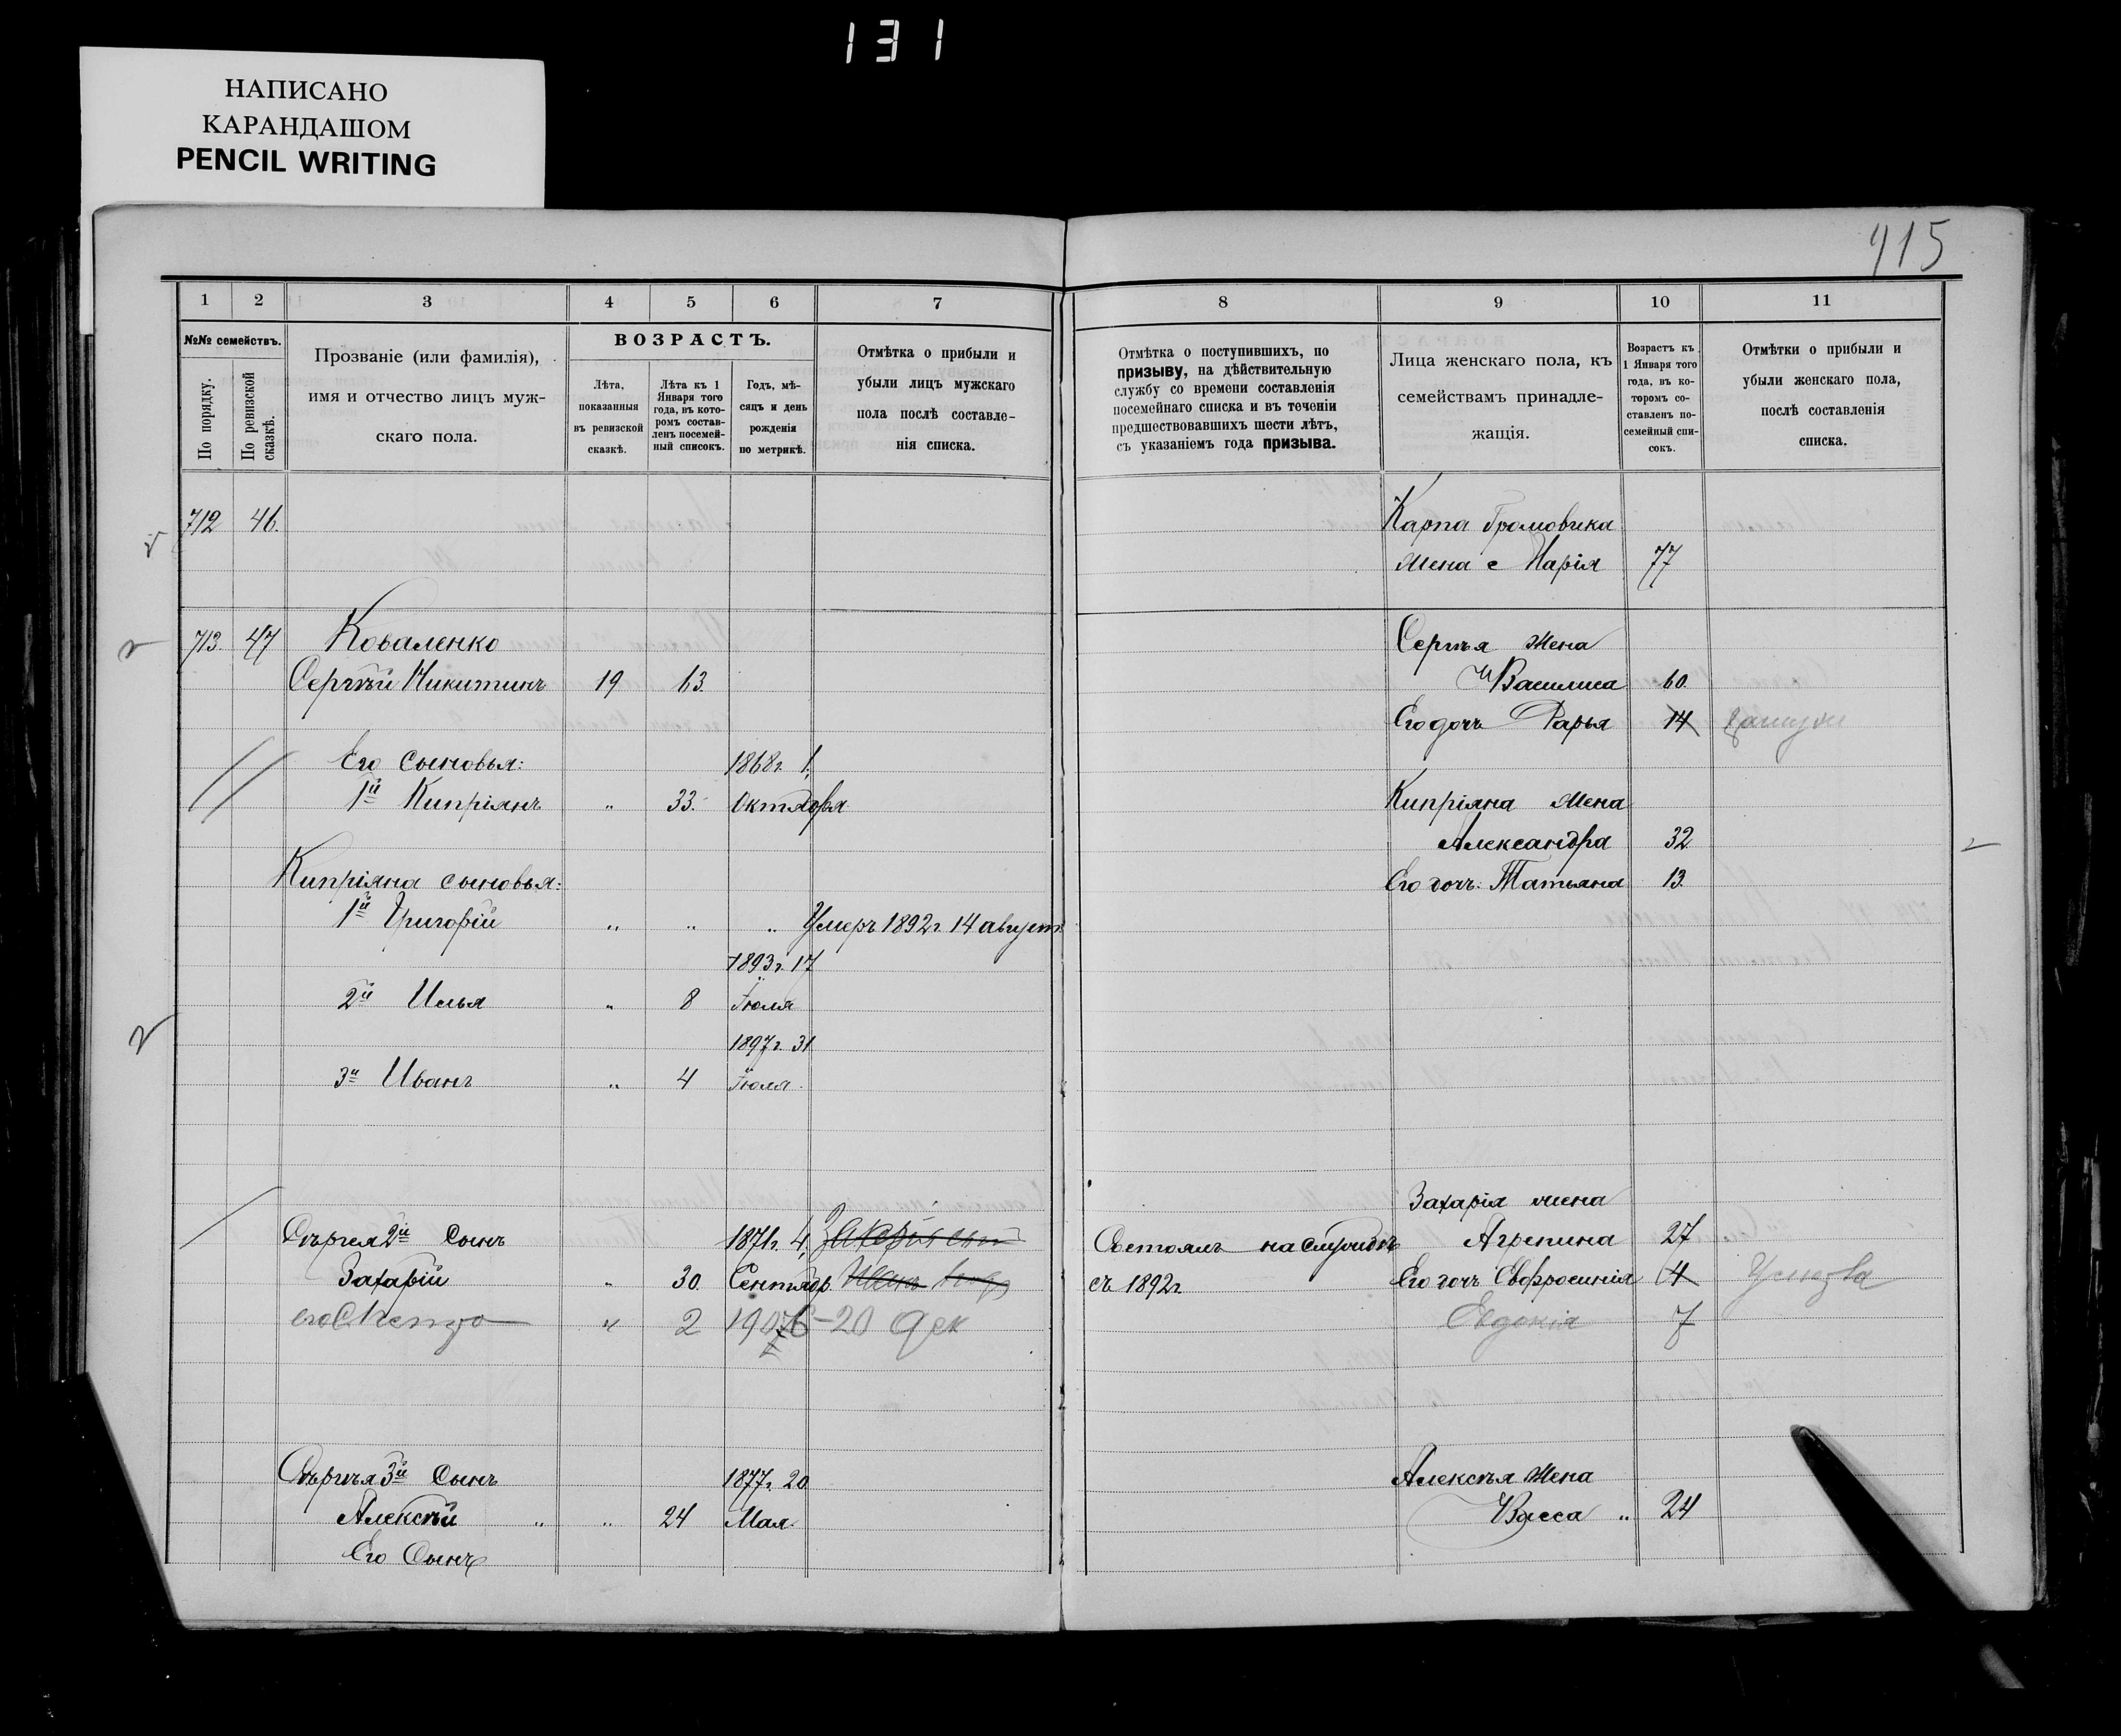 131
НАПИСАНО
КАРАНДАШОМ
PENCIL WRITING
915
1 2 3 4 5 6 7
№№ семействъ.
По порядку.
По ревизской сказкѣ.
Прозваніе (или фамилія),
имя и отчество лицъ муж-
скаго пола.
ВОЗРАСТЪ.
Лѣта,
показанныя
въ ревизской
сказкѣ.
Лѣта къ 1
Января того
года, въ кото-
ромъ состав-
ленъ посемей-
ный списокъ.
Годъ, мѣ-
сяцъ и день
рожденія
по метрикѣ.
Отмѣтка о прибыли и
убыли лицъ мужскаго
пола послѣ составле-
нія списка.
8 9 10 11
Отмѣтка о поступившихъ, по
призыву, на дѣйствительную
службу со времени составленія
посемейнаго списка и въ теченіи
предшествовавшихъ шести лѣтъ,
съ указаніемъ года призыва.
Лица женскаго пола, къ
семействамъ принадле-
жащія.
Возрастъ къ
1 Января того
года, въ ко-
торомъ со-
ставленъ по-
семейный спи-
сокъ.
Отмѣтки о прибыли и
убыли женскаго пола,
послѣ составленія
списка.
712 46. Карпа Громовика
Жена Марія 77
713. 47 Коваленко Сергѣя Жена
Сергѣй Никитинъ 19 63. Василиса 60.
Его дочь Дарья 14 замужем
Его сыновья: 1868г. 1,
1й Кипріянъ " 33. Октября Кипріяна Жена
Александра 32
Кипріяна сыновья: Его дочь: Татьяна 13.
1й Григорій " " " Умеръ 1892г. 14 август.
1893г. 17
2й Илья " 8 Іюля
1897г. 31
3й Иванъ " 4 Іюля.
Захарія жена
Сергѣя 2й Сынъ 1871г. 4, Состоялъ на службѣ Агрепина 27
Захарій " 30. Сентябр. съ 1892г Его дочь Евфросинія 4
его " 2 1906-20 дек Евдокія 7
Сергѣя 3й Сынъ 1877г. 20 Алексѣя Жена
Алексѣй " " 24 Мая. Васса " 24
Его Сынъ